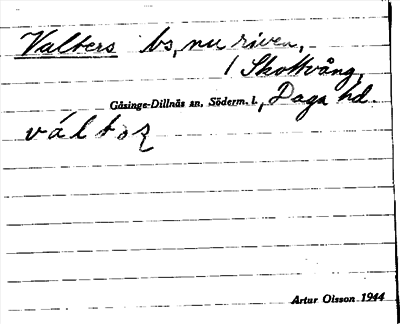 Valbers bs, nu riven,
/ Skottvång,
Gåsinge-Dillnäs sn, Söderm. l., Daga hd.
Artur Olsson 1944